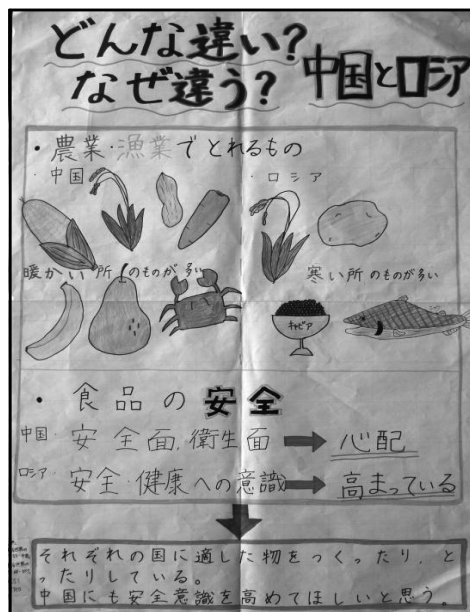 どんな違い?
なぜ違う?
中国とロシア
・農業・漁業でとれるもの
・中国
・ロシア
暖かい所のものが多い
寒い所のものが多い
キャビア
・食品の安全
中国・安全面、衛生面➡心配
ロシア・安全・健康への意識➡高まっている
それぞれの国に適した物をつくったり、と
ったりしている。
中国にも安全意識を高めてほしいと思う。